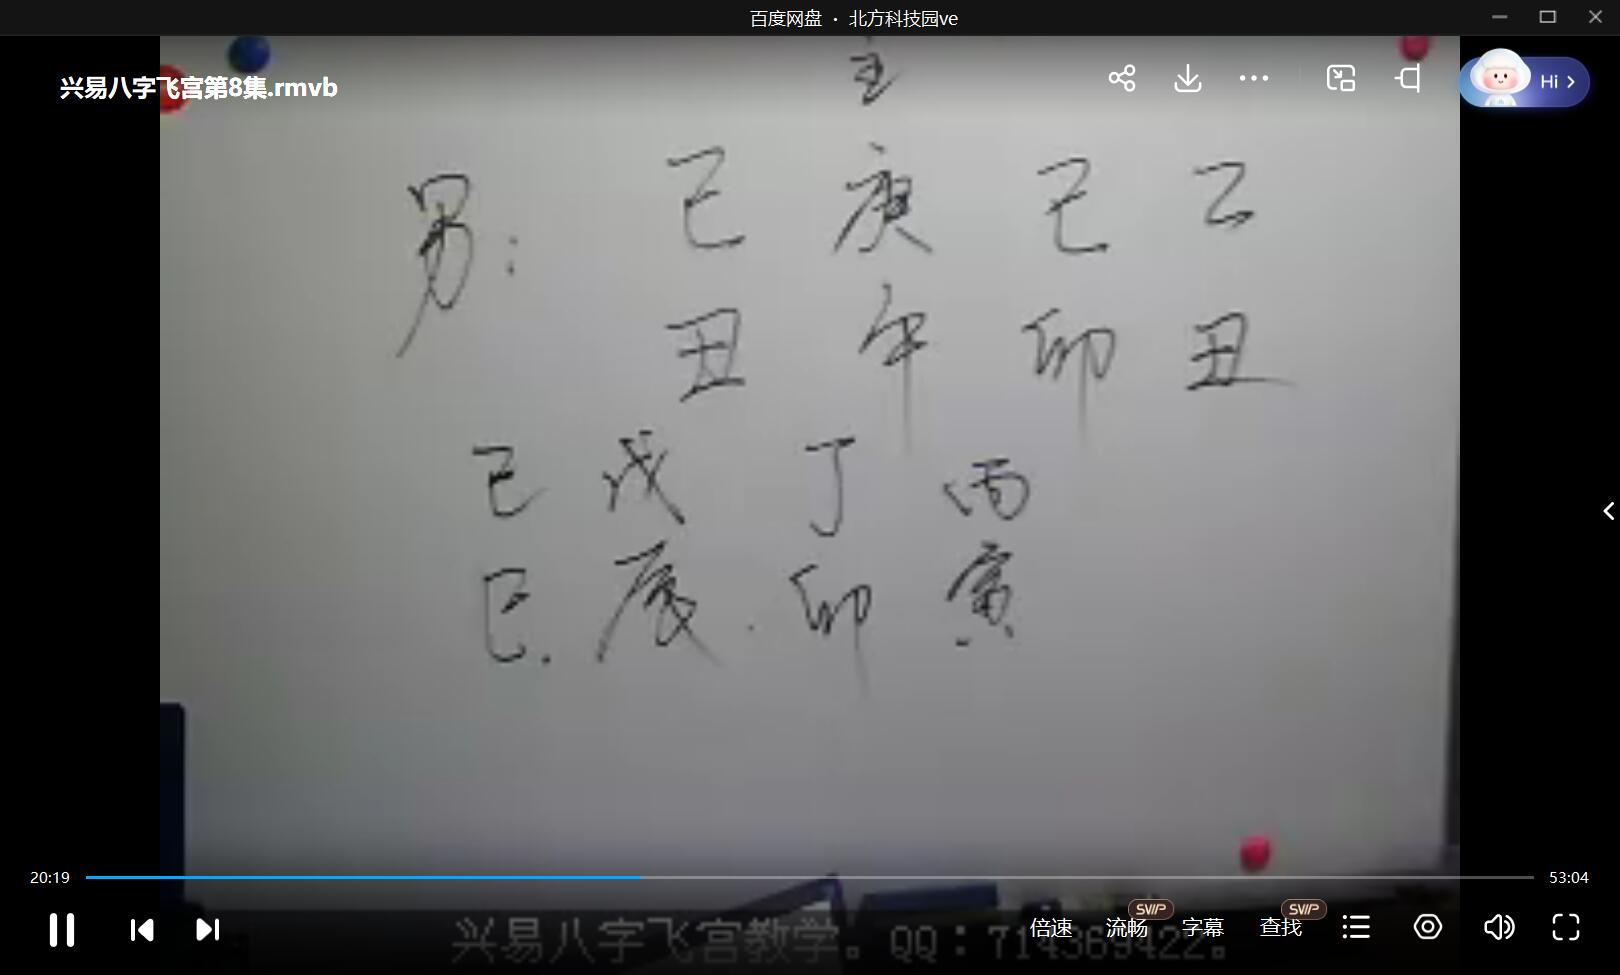 百度网盘 · 北方科技园ve
兴易八字飞宫第8集.rmvb
Hi
主
男： 己 庚 己 乙
丑 午 卯 丑
己 戊 丁 丙
巳. 辰. 卯 寅
20:19
53:04
倍速 流畅 SVIP 字幕 查找 SVIP
兴易八字飞宫教学。QQ：714369422。